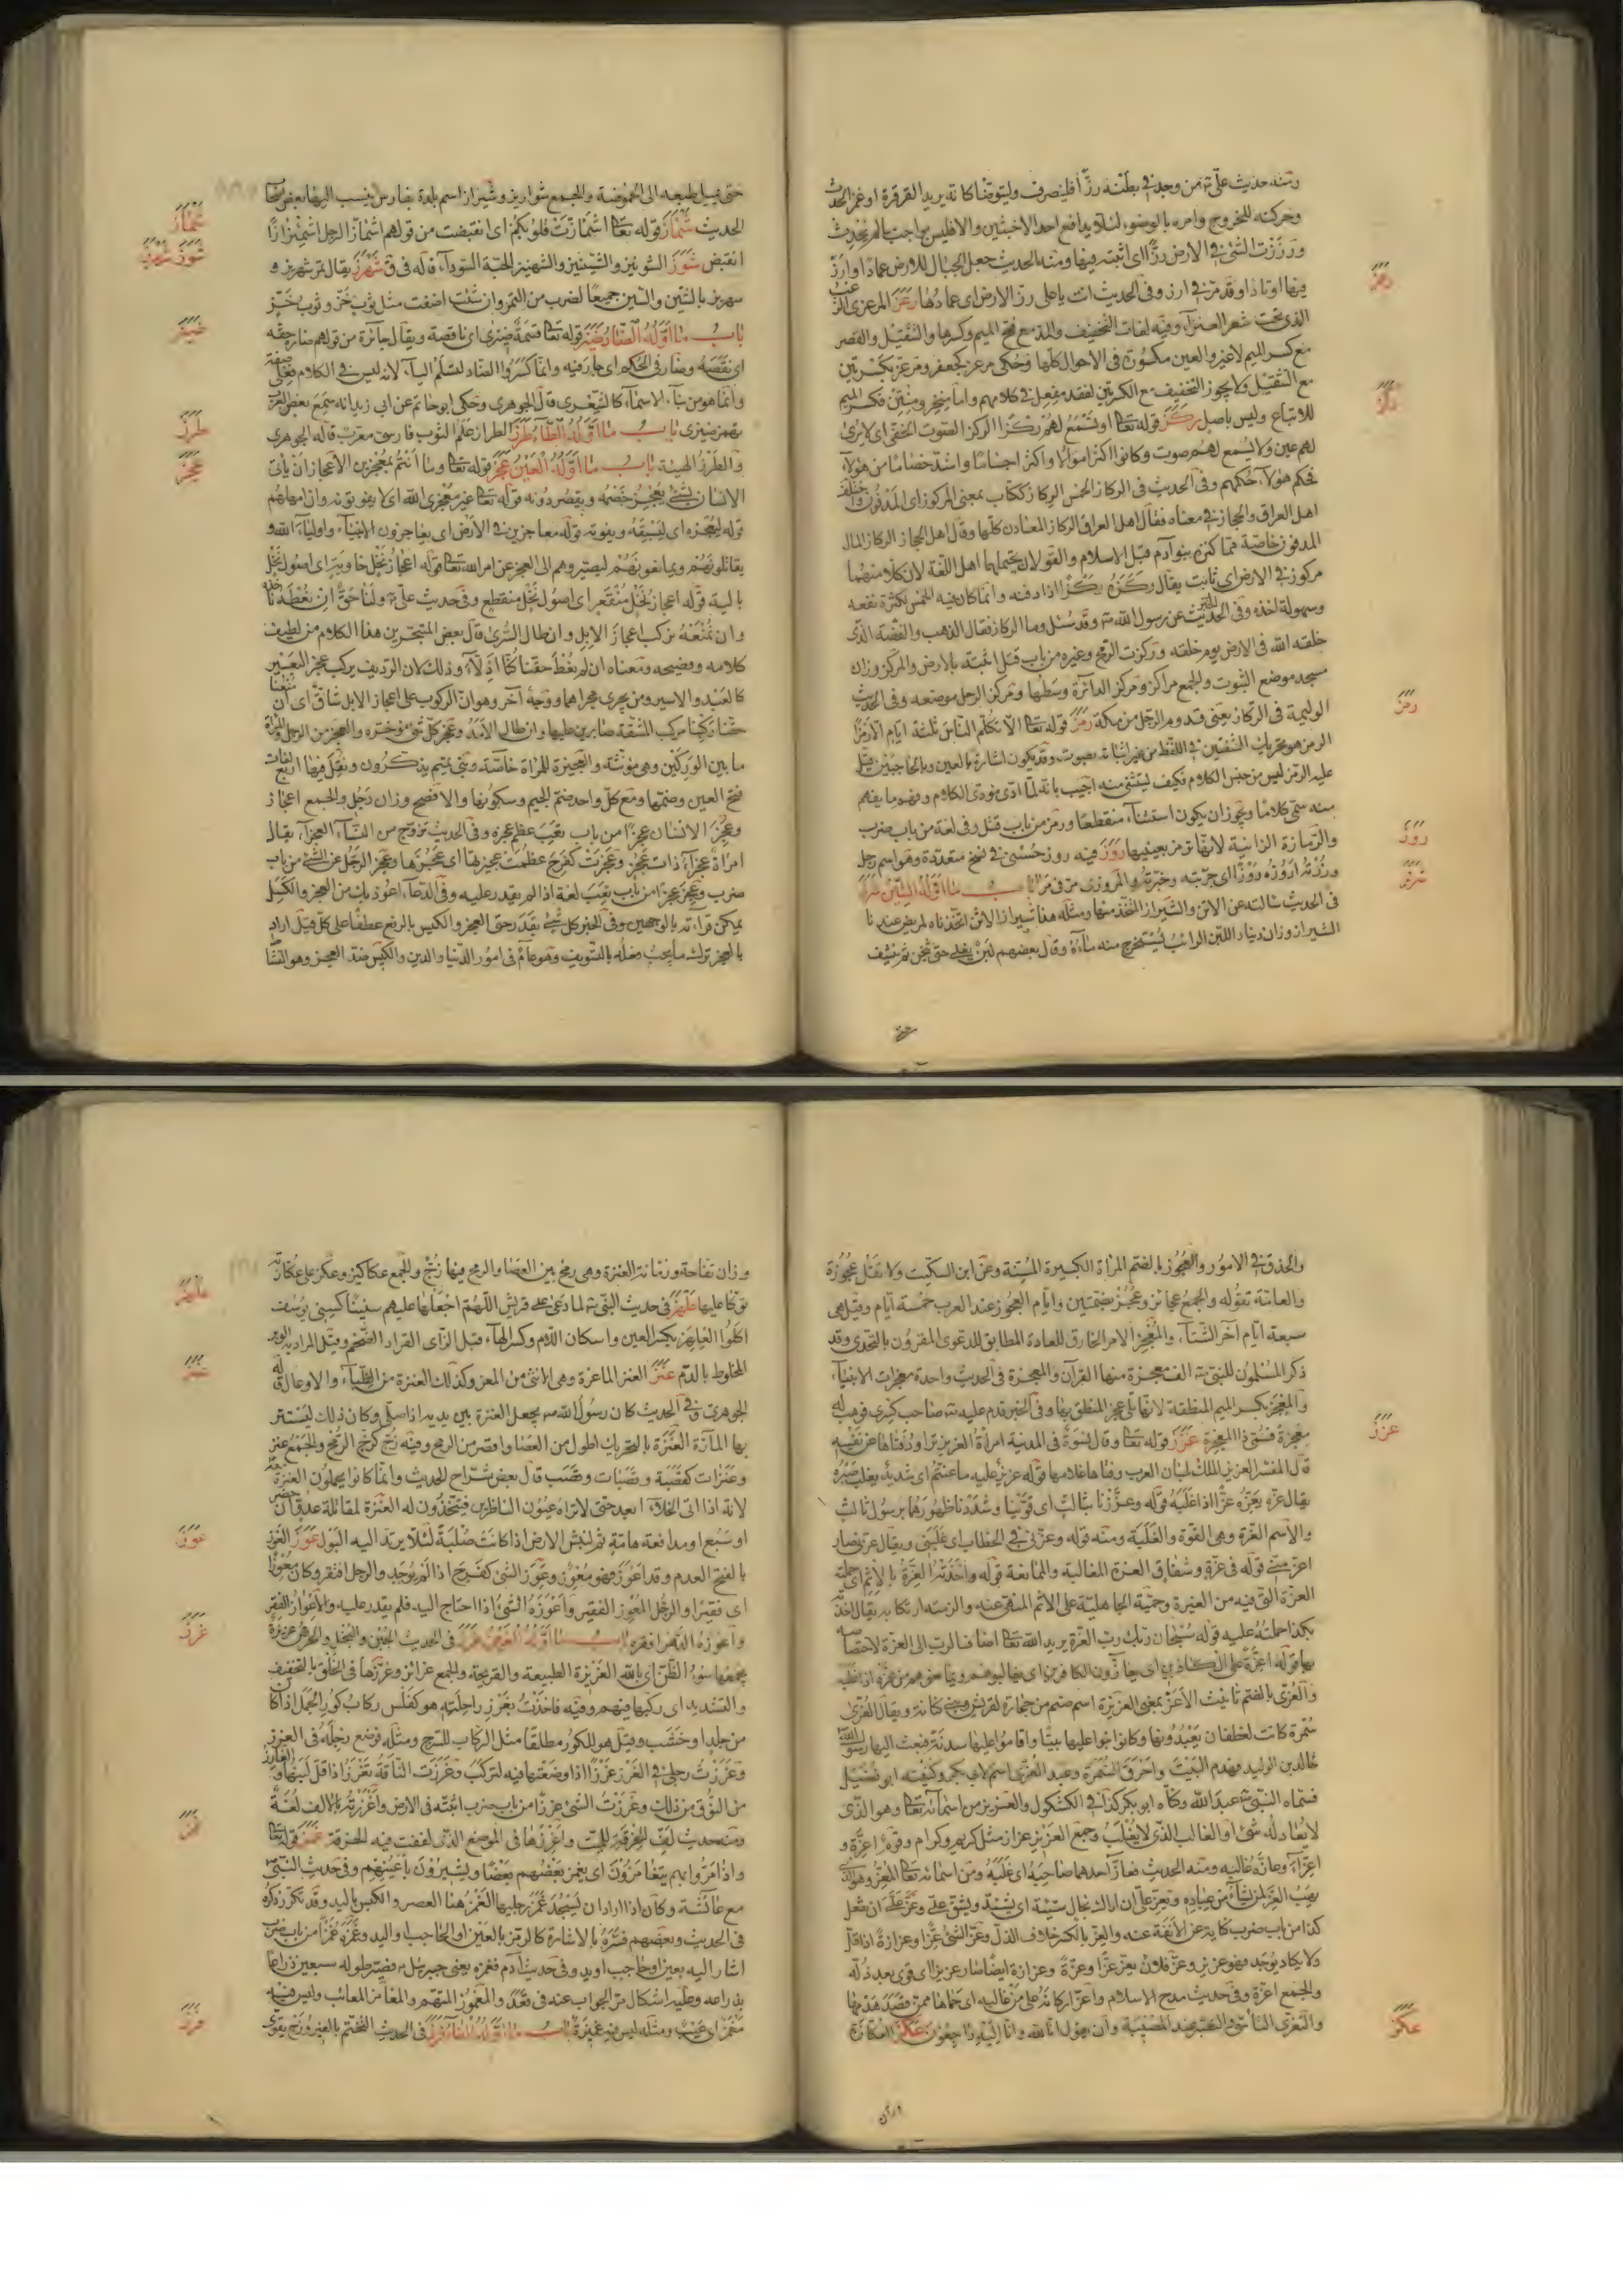 ومنه حديث علي من وجد في بطنه رزا فلينصرف وليتوضأ كانه يريد القرقرة او غمز الحدث
وحركته للخروج وامره بالوضوء لئلا يدافع احد الاخبثين والا فليس بواجب ان لم يحدث
ورززت الشئ في الارض رزا اى اثبته فيها ومنه الحديث جعل الجبال للارض عمادا وارز
فيها اوتادا وقد مر في ارز وفي الحديث انت يا على رز الارض اى عمادها رعز المرعزى
الذى تحت شعر العنز وفيه لغات التخفيف والمد مع فتح الميم وكسرها والتثقيل والقصر
مع كسر الميم لا غير والعين مكسورة في الاحوال كلها وحكى مرعز كجعفر ومرعز بكسرتين
مع التثقيل ولا يجوز التخفيف مع الكسرتين لفقد مفعل في كلامهم واما منخر ومنتن فكسر الميم
للاتباع وليس باصل ركز قوله تعا او تسمع لهم ركزا الركز الصوت الخفى اى لا يرى
لهم عين ولا يسمع لهم صوت وكانوا اكثر اموالا واكثر اجساما واشد خصاما من هؤلاء
فحكم هؤلاء حكمهم وفي الحديث في الركاز الخمس الركاز ككتاب بمعنى المركوز اى المدفون واختلف
اهل العراق والحجاز في معناه فقال اهل العراق الركاز المعادن كلها وقال اهل الحجاز الركاز المال
المدفون خاصة مما كنزه بنو آدم قبل الاسلام والقولان يحتملهما اهل اللغة لان كلا منهما
مركوز في الارض اى ثابت يقال ركزه يركزه ركزا اذا دفنه وانما كان فيه الخمس لكثرة نفعه
وسهولة اخذه وفي الحديث عن رسول الله وقد سئل وما الركاز فقال الذهب والفضة الذى
خلقه الله في الارض يوم خلقه وركزت الرمح وغيره من باب قتل اثبته بالارض والمركز وزان
مسجد موضع الثبوت والجمع مراكز ومركز الدائرة وسطها ومركز الرجل موضعه وفي الحديث
الوليمة في الركاز يعنى قدوم الرجل من مكة رمز قوله تعا الا تكلم الناس ثلثة ايام الا رمزا
الرمز هو تحريك الشفتين في اللفظ من غير ابانة بصوت وقد يكون اشارة بالعين وبالحاجبين
عليه الرمز ليس من جنس الكلام فكيف ليستثنى منه اجيب بانه لما ادى مؤدى الكلام وفهم ما يفهم
منه سمى كلاما ويجوز ان يكون استثناء منقطعا ورمز من باب قتل وفي لغة من باب ضرب
والرمازة الزانية لانها ترمز بعينيها روز فيه روز حسنى في نسخ متعددة وهو اسم رجل
ورزته اروزه روزا اى جربته وخبرته والمروزى مر في مرا باب ما اوله الشين شرز
في الحديث سالته عن الاتن والشيراز المتخذ منها ومثله هذا شيراز الاتن اتخذناه لمريض عندنا
الشيراز وزان دينار اللبن الرائب يستخرج منه ماءه وقال بعضهم لبن يغلى حتى يثخن ثم ينشف
حتى يميل طبعه الى الحموضة والجمع شواريز وشيراز اسم بلدة بفارس ينسب اليها بعض
الحديث شمأز قوله تعا اشمأزت قلوبكم اى انقبضت من قولهم اشمأز الرجل اشمئزازا
انقبض شوز الشونيز والشينيز والشهنيز الحبة السوداء قاله في ق شهرز يقال تمر شهريز و
سهريز بالشين والسين جميعا لضرب من التمر وان شئت اضفت مثل ثوب خز وثوب خز
باب ما اوله الضاد ضيز قوله تعا قسمة ضيزى اى ناقصة ويقال جائرة من قولهم ضازه حقه
اى نقصه وضاز في الحكم اى جار فيه وانما كسروا الضاد لتسلم الياء لانه ليس في الكلام فعلى صفة
وانما هو من بناء الاسماء كالشعرى قال الجوهرى وحكى ابو حاتم عن ابى زيد انه سمع بعض العرب
يهمز ضيزى باب ما اوله الطاء طرز الطراز علم الثوب فارسى معرب قاله الجوهرى
والطرز الهيئة باب ما اوله العين عجز قوله تعا وما انتم بمعجزين الاعجاز ان يأتى
الانسان بشئ يعجز خصمه ويقصر دونه قوله تعا غير معجزى الله اى لا يفوتونه وان امهلهم
قوله ليعجزه اى ليسبقه ويفوته قوله معاجزين في الارض اى يعاجزون الانبياء واولياء الله
يقاتلونهم ويمانعونهم ليصيروهم الى العجز عن امر الله تعا قوله اعجاز نخل خاوية اى اصول نخل
بالية قوله اعجاز نخل منقعر اى اصول نخل منقطع وفي حديث على ولنا حق ان نعطه ناخذه
وان نمنعه نركب اعجاز الابل وان طال السرى قال بعض المتبحرين هذا الكلام من لطيف
كلامه وفصيحه ومعناه ان لم نعط حقنا كنا اذلاء وذلك لان الرديف يركب عجز البعير
كالعبد والاسير ومن يجرى مجراهما ووجه آخر وهو ان الركوب على اعجاز الابل شاق اى ان منعنا
حقنا ركبنا مركب المشقة صابرين عليها وان طال الامد وعجز كل شئ مؤخره والعجز من الرجل والمراة
ما بين الوركين وهى مؤنثة والعجيزة للمراة خاصة وبنو تميم يذكرون ونقل فيها اربع لغات
فتح العين وضمها ومع كل واحد ضم الجيم وسكونها والافصح وزان رجل والجمع اعجاز
وعجز الانسان عجزا من باب تعب عظم عجزه وفي الحديث تزوج من النساء العجزاء يقال
امراة عجزاء ذات عجز وعجزت كفرح عظمت عجيزتها اى عجزها وعجز الرجل عن الشئ من باب
ضرب وعجز عجزا من باب تعب لغة اذا لم يقدر عليه وفي الدعاء اعوذ بك من العجز والكسل
يمكن قراءته بالوجهين وفي الخبر كل شئ بقدر حتى العجز والكيس بالرفع عطفا على كل قيل اراد
بالعجز ترك ما يجب فعله بالتسويف وهو عام في امور الدنيا والدين والكيس ضد العجز وهو النشاط
والحذق في الامور والعجوز بالضم المراة الكبيرة المسنة وعن ابن السكيت ولا تقل عجوزة
والعامة تقوله والجمع عجائز وعجز بضمتين وايام العجوز عند العرب خمسة ايام وقيل هى
سبعة ايام آخر الشتاء والمعجز الامر الخارق للعادة المطابق للدعوى المقرون بالتحدى وقد
ذكر المسلمون للنبى الف معجزة منها القرآن والمعجزة في الحديث واحدة معجزات الانبياء
والمعجز بكسر الميم المنطقة لانها تلى عجز المنطق بها وفي الخبر قدم عليه صاحب كسرى فوهب له
معجزة فسمى ذا المعجزة عزز قوله تعا وقال نسوة في المدينة امراة العزيز تراود فتاها عن نفسه
قال المفسر العزيز الملك بلسان العرب وفتاها غلامها قوله عزيز عليه ما عنتم اى شديد يغلب صبره
يقال عزه يعزه عزا اذا غلبه قوله وعززنا بثالث اى قوينا وشددنا ظهورهما برسول ثالث
والاسم العزة وهى القوة والغلبة ومنه قوله وعزنى في الخطاب اى غلبنى ويقال عزنى صار
اعز منى قوله في عزة وشقاق العزة المغالبة والممانعة قوله واخذته العزة بالاثم اى حملته
العزة التى فيه من الغيرة وحمية الجاهلية على الاثم المنهى عنه والزمته ارتكابه يقال اخذته
بكذا حملته عليه قوله سبحان ربك رب العزة يريد الله تعا اضاف الرب الى العزة لاختصاصه
بها قوله اعزة على الكافرين اى يعازون الكافرين اى يغالبونهم ويمانعونهم من عزه اذا غلبه
والعزى بالضم تانيث الاعز بمعنى العزيزة اسم صنم من حجارة لقريش وبنى كنانة ويقال العزى
سمرة كانت لغطفان يعبدونها وكانوا بنوا عليها بيتا واقاموا عليها سدنة فبعث اليها رسول الله
خالد بن الوليد فهدم البيت واحرق السمرة وعبد العزى اسم لابى بكر وكنيته ابو فضيل
فسماه النبى عبد الله وكناه ابو بكر كذا في الكشكول والعزيز من اسمائه تعا وهو الذى
لا يعادله شئ او الغالب الذى لا يغلب وجمع العزيز عزاز مثل كريم وكرام وقوم اعزة و
اعزاء وعازه غالبه ومنه الحديث فعاز احدهما صاحبه اى غلبه ومن اسمائه تعا المعز وهو الذى
يهب العز لمن يشاء من عباده ويعز على ان اراك بحال سيئة اى يشتد ويشق على وعز على ان تفعل
كذا من باب ضرب كناية عن الانفة عنه والعز بالكسر خلاف الذل وعز الشئ عزا وعزازة اذا قل
ولا يكاد يوجد فهو عزيز وعز فلان يعز عزا وعزة وعزازة ايضا صار عزيزا اى قوى بعد ذلة
والجمع اعزة وفي حديث مدح الاسلام واعز اركانه على من غالبه اى حماها ممن قصد هدمها
والتعزى التاسى والتصبر عند المصيبة وان يقول انا لله وانا اليه راجعون عكز العكازة
وزان تفاحة ورمانة العنزة وهى رمح بين العصا والرمح فيها زج والجمع عكاكيز وعكز على عكازته
توكا عليها علهز في حديث النبى لما دعى على قريش اللهم اجعلها عليهم سنينا كسنى يوسف
اكلوا العلهز بكسر العين واسكان اللام وكسر الهاء قيل الزاى القراد الضخم وقيل المراد به الوبر
المخلوط بالدم عنز العنز الماعزة وهى الانثى من المعز وكذلك العنزة من الظباء والاوعال قاله
الجوهرى وفي الحديث كان رسول الله يجعل العنزة بين يديه اذا صلى وكان ذلك ليستتر
بها المارة العنزة بالتحريك اطول من العصا واقصر من الرمح وفيه زج كزج الرمح والجمع عنز
وعنزات كقصبة وقصبات وقصب قال بعض شراح الحديث وانما كانوا يحملون العنزة معه
لانه اذا اتى الخلاء ابعد حتى لا تراه عيون الناظرين فيتخذون له العنزة لمقاتلة عدو ان حضر
او سبع او مدافعة هامة ثم لنبش الارض اذا كانت صلبة لئلا يرتد اليه البول عوز العوز
بالفتح العدم وقد اعوز فهو معوز وعوز الشئ كفرح اذا لم يوجد والرجل افتقر وكان معوزا
اى فقيرا والرجل المعوز الفقير واعوزه الشئ اذا احتاج اليه فلم يقدر عليه والاعواز الفقر
واعوزه الدهر افقره باب ما اوله الغين غرز في الحديث الجبن والبخل والحرص غريزة
يجمعها سوء الظن اى بالله الغريزة الطبيعة والقريحة والجمع غرائز وغرزها في الخلق بالتخفيف
والتشديد اى ركبها فيهم وفيه فاخذت بغرز راحلته هو كفلس ركاب كور الجمل اذا كان
من جلد او خشب وقيل هو للكور مطلقا مثل الركاب للسرج ومثله فوضع رجله في الغرز
وغرزت رجلى في الغرز غرزا اذا وضعتها فيه لتركب وغرزت الناقة تغرز اذا قل لبنها والغارز
من النوق من ذلك وغرزت الشئ غرزا من باب ضرب اثبته في الارض واغرزته بالالف لغة
ومنه حديث لف الخرقة للميت واغرزها في الموضع الذى لففت فيه الخرقة غمز قوله تعا
واذا مروا بهم يتغامزون اى يغمز بعضهم بعضا ويشيرون باعينهم وفي حديث النبى
مع عائشة وكان اذا اراد ان يسجد غمز رجليها الغمز هنا العصر والكبس باليد وقد تكرر ذكره
في الحديث وبعضهم فسره بالاشارة كالرمز بالعين او الحاجب واليد وغمزه غمزا من باب ضرب
اشار اليه بعين او حاجب او يد وفي حديث آدم فغمزه يعنى جبرئيل فصير طوله سبعين ذراعا
بذراعه وعليه اشكال مر الجواب عنه في قعد والمغموز المتهم والمغامز المعائب وليس فيه
مغمز اى عيب ومثله ليس فيه غميزة باب ما اوله الفاء فرز في الحديث التختم بالفيروزج يقوى
شمأز
شوز شهرز
ضيز
طرز
عجز
رعز
ركز
رمز
روز
شرز
علهز
عنز
عوز
غرز
غمز
فرز
عزز
عكز
حتى
وزان